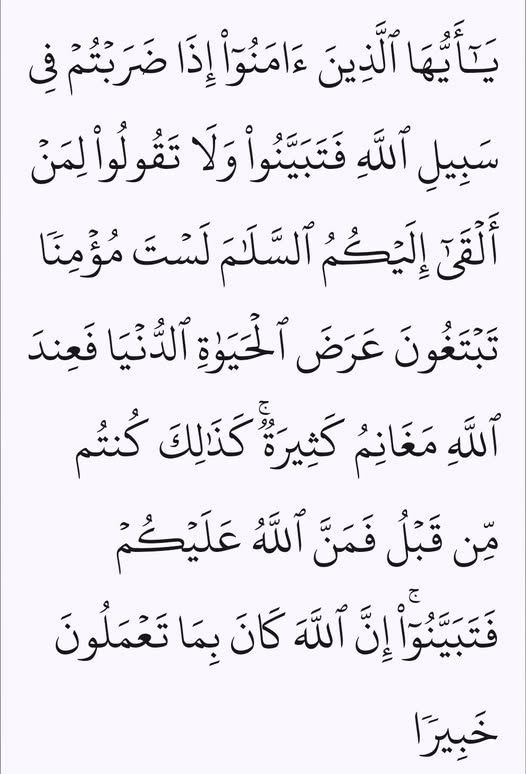 يَـٰٓأَيُّهَا ٱلَّذِينَ ءَامَنُوٓا۟ إِذَا ضَرَبۡتُمۡ فِی
سَبِیلِ ٱللَّهِ فَتَبَيَّنُوا۟ وَلَا تَقُولُوا۟ لِمَنۡ
أَلۡقَىٰۤ إِلَیۡكُمُ ٱلسَّلَـٰمَ لَسۡتَ مُؤۡمِنࣰا
تَبۡتَغُونَ عَرَضَ ٱلۡحَیَوٰةِ ٱلدُّنۡیَا فَعِندَ
ٱللَّهِ مَغَانِمُ كَثِیرَةࣱۚ كَذَ ٰ⁠لِكَ كُنتُم
مِّن قَبۡلُ فَمَنَّ ٱللَّهُ عَلَیۡكُمۡ
فَتَبَیَّنُوۤا۟ۚ إِنَّ ٱللَّهَ كَانَ بِمَا تَعۡمَلُونَ
خَبِیرࣰا